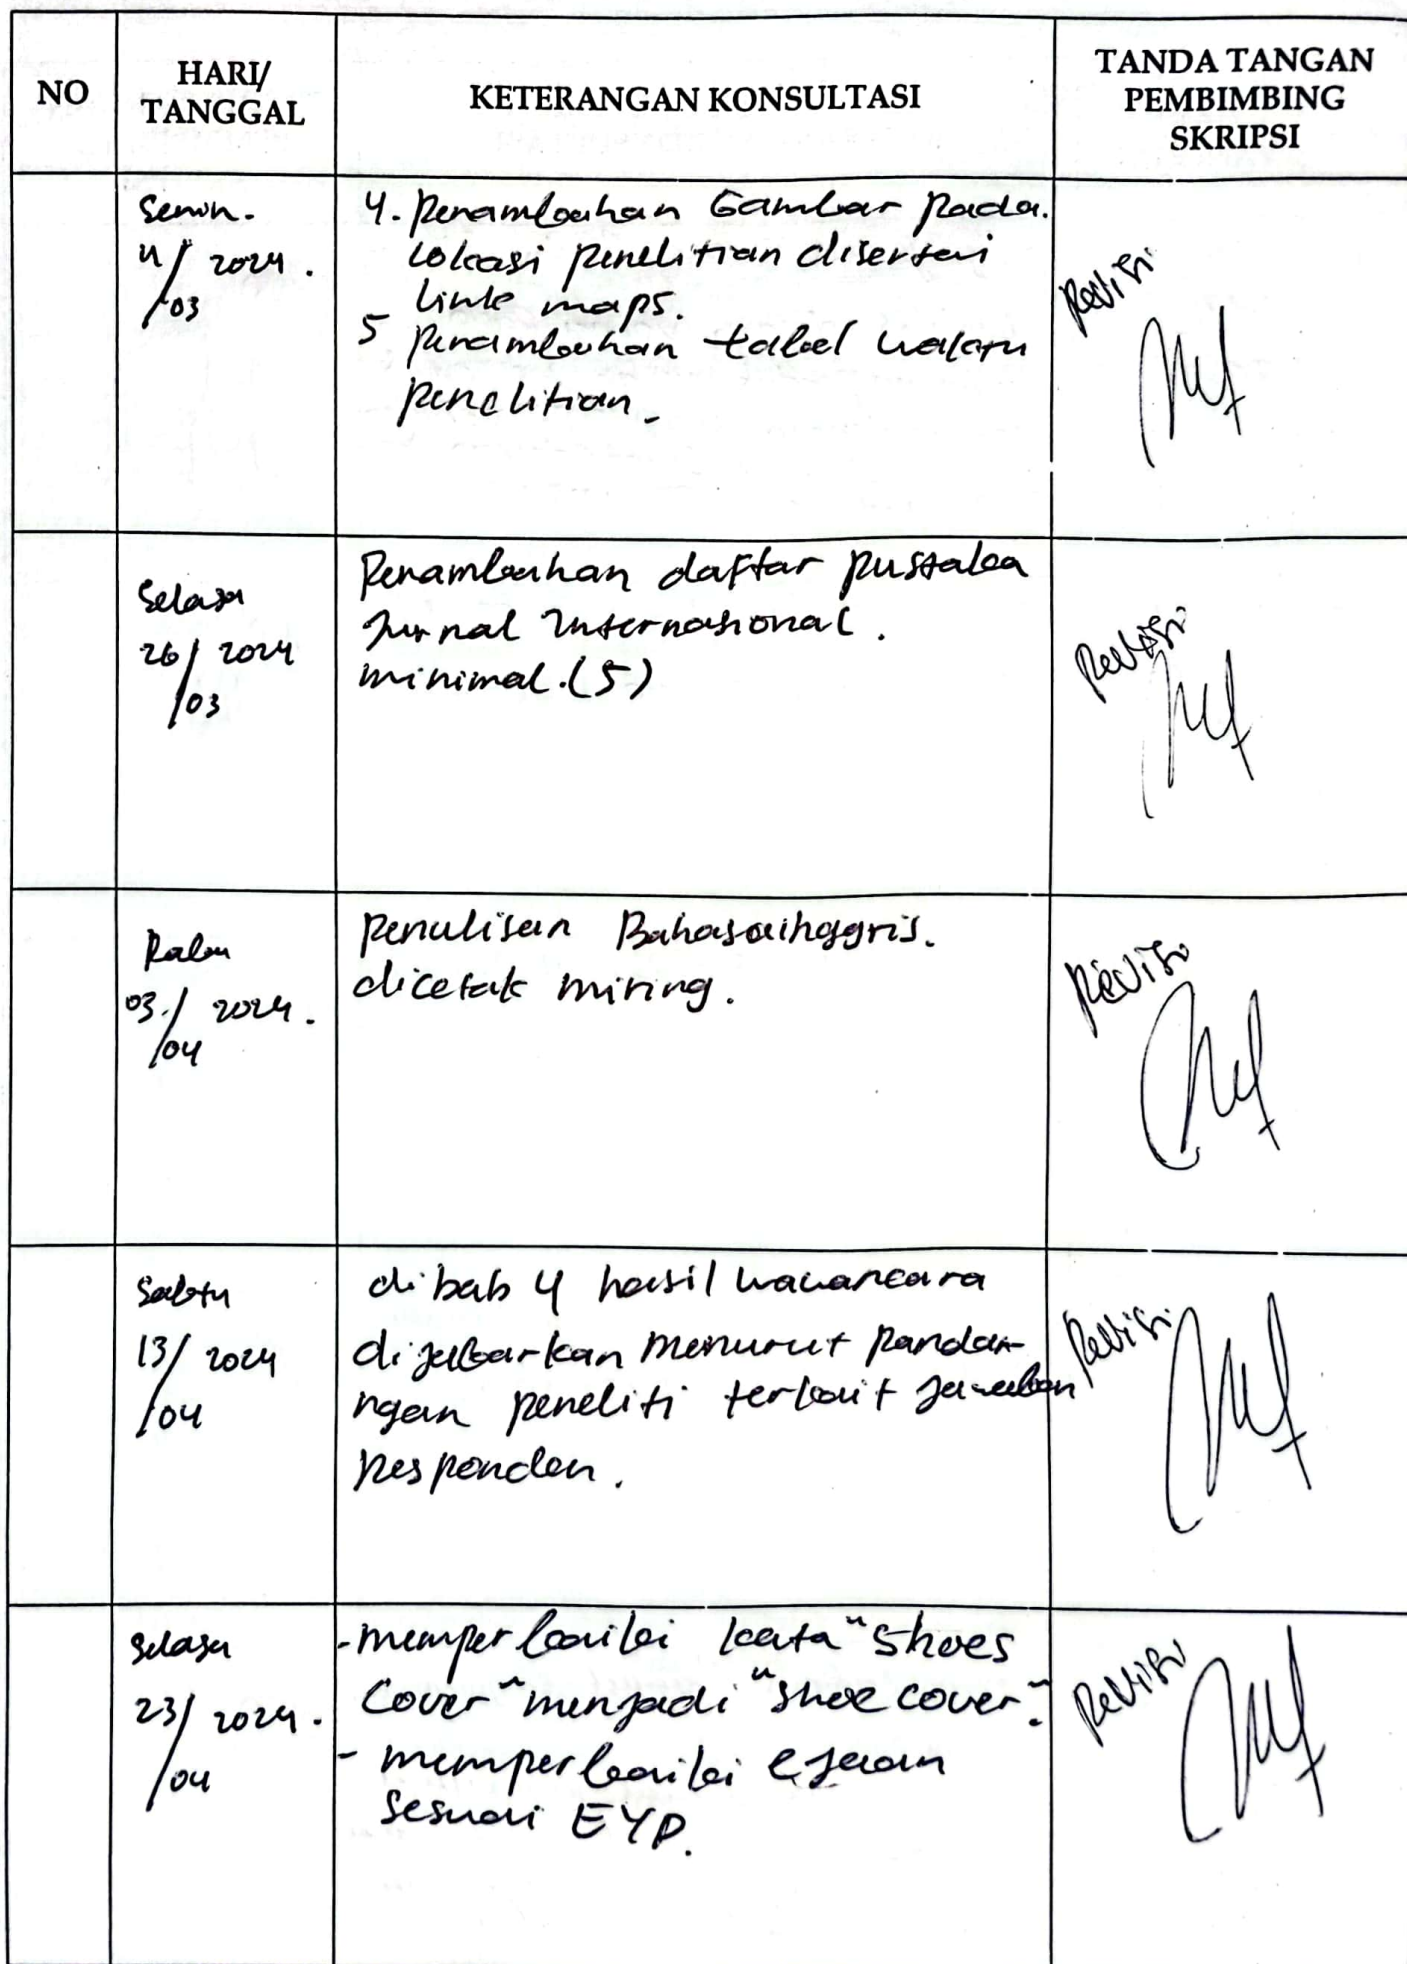 NO
HARI/
TANGGAL
KETERANGAN KONSULTASI
TANDA TANGAN
PEMBIMBING
SKRIPSI
Senin.
/ 2024.
/03
4. Penambahan Gambar pada.
lokasi penelitian disertai
link maps.
5 Penambahan tabel waktu
penelitian.
Revisi
Selasa
26/ 2024
/03
Penambahan daftar pustaka
Jurnal Internasional.
minimal.(5)
Revisi
Rabu
03/ 2024.
/04
Penulisan Bahasa inggris.
dicetak miring.
Revisi
Sabtu
13/ 2024
/04
di bab 4 hasil wawancara
dijabarkan menurut pandan-
ngan peneliti terkait jawaban
Responden.
Revisi
Selasa
23/ 2024.
/04
- memperbaiki kata "shoes
cover" menjadi "shoe cover".
- memperbaiki ejaan
sesuai EYD.
Revisi